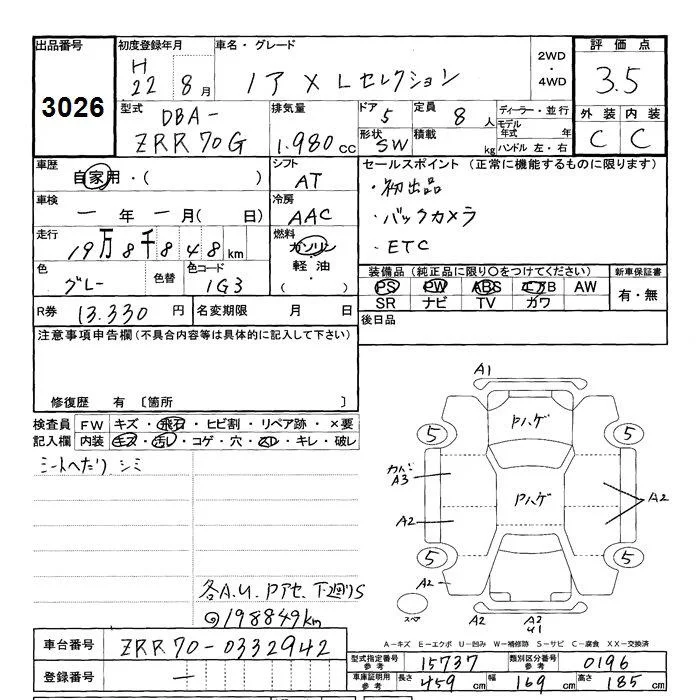 出品番号 初度登録年月 車名・グレード 2WD・4WD 評価点
3026 H 22 8月 ノア X Lセレクション 3.5
型式 DBA-ZRR70G 排気量 1.980cc ドア 5 定員 8人 ディーラー・並行 外装 内装
形状 SW 積載 kg モデル年式 年 ハンドル 左・右 C C
車歴 自家用・( ) シフト AT セールスポイント(正常に機能するものに限ります)
車検 一年一月( 日) 冷房 AAC ・初出品
・バックカメラ
・ETC
走行 19万8千848km 燃料 ガソリン・軽油・( )
色 グレー 色替 色コード 1G3 装備品(純正品に限り○をつけてください) 新車保証書
PS PW ABS エアB AW 有・無
SR ナビ TV カワ
R券 13.330円 名変期限 月 日 後日品
注意事項申告欄(不具合内容等は具体的に記入して下さい)
修復歴 有〔箇所 〕
検査員 FW キズ・飛石・ヒビ割・リペア跡・×要
記入欄 内装 キズ・汚レ・コゲ・穴・スレ・キレ・破レ
シートへたり シミ
A1
Pハゲ
5 5
カバ
A3 Pハゲ A2
A2
5 5
A2
スペア A2 A2
U1
各A.U. Pアセ. 下廻りS
◎198849km
A-キズ E-エクボ U-凹み W-補修跡 S-サビ C-腐食 XX-交換済
車台番号 ZRR70-0332942
型式指定番号 参考 15737 類別区分番号 参考 0196
登録番号 一
車庫証明用 参考 長さ 459cm 幅 169cm 高さ 185cm